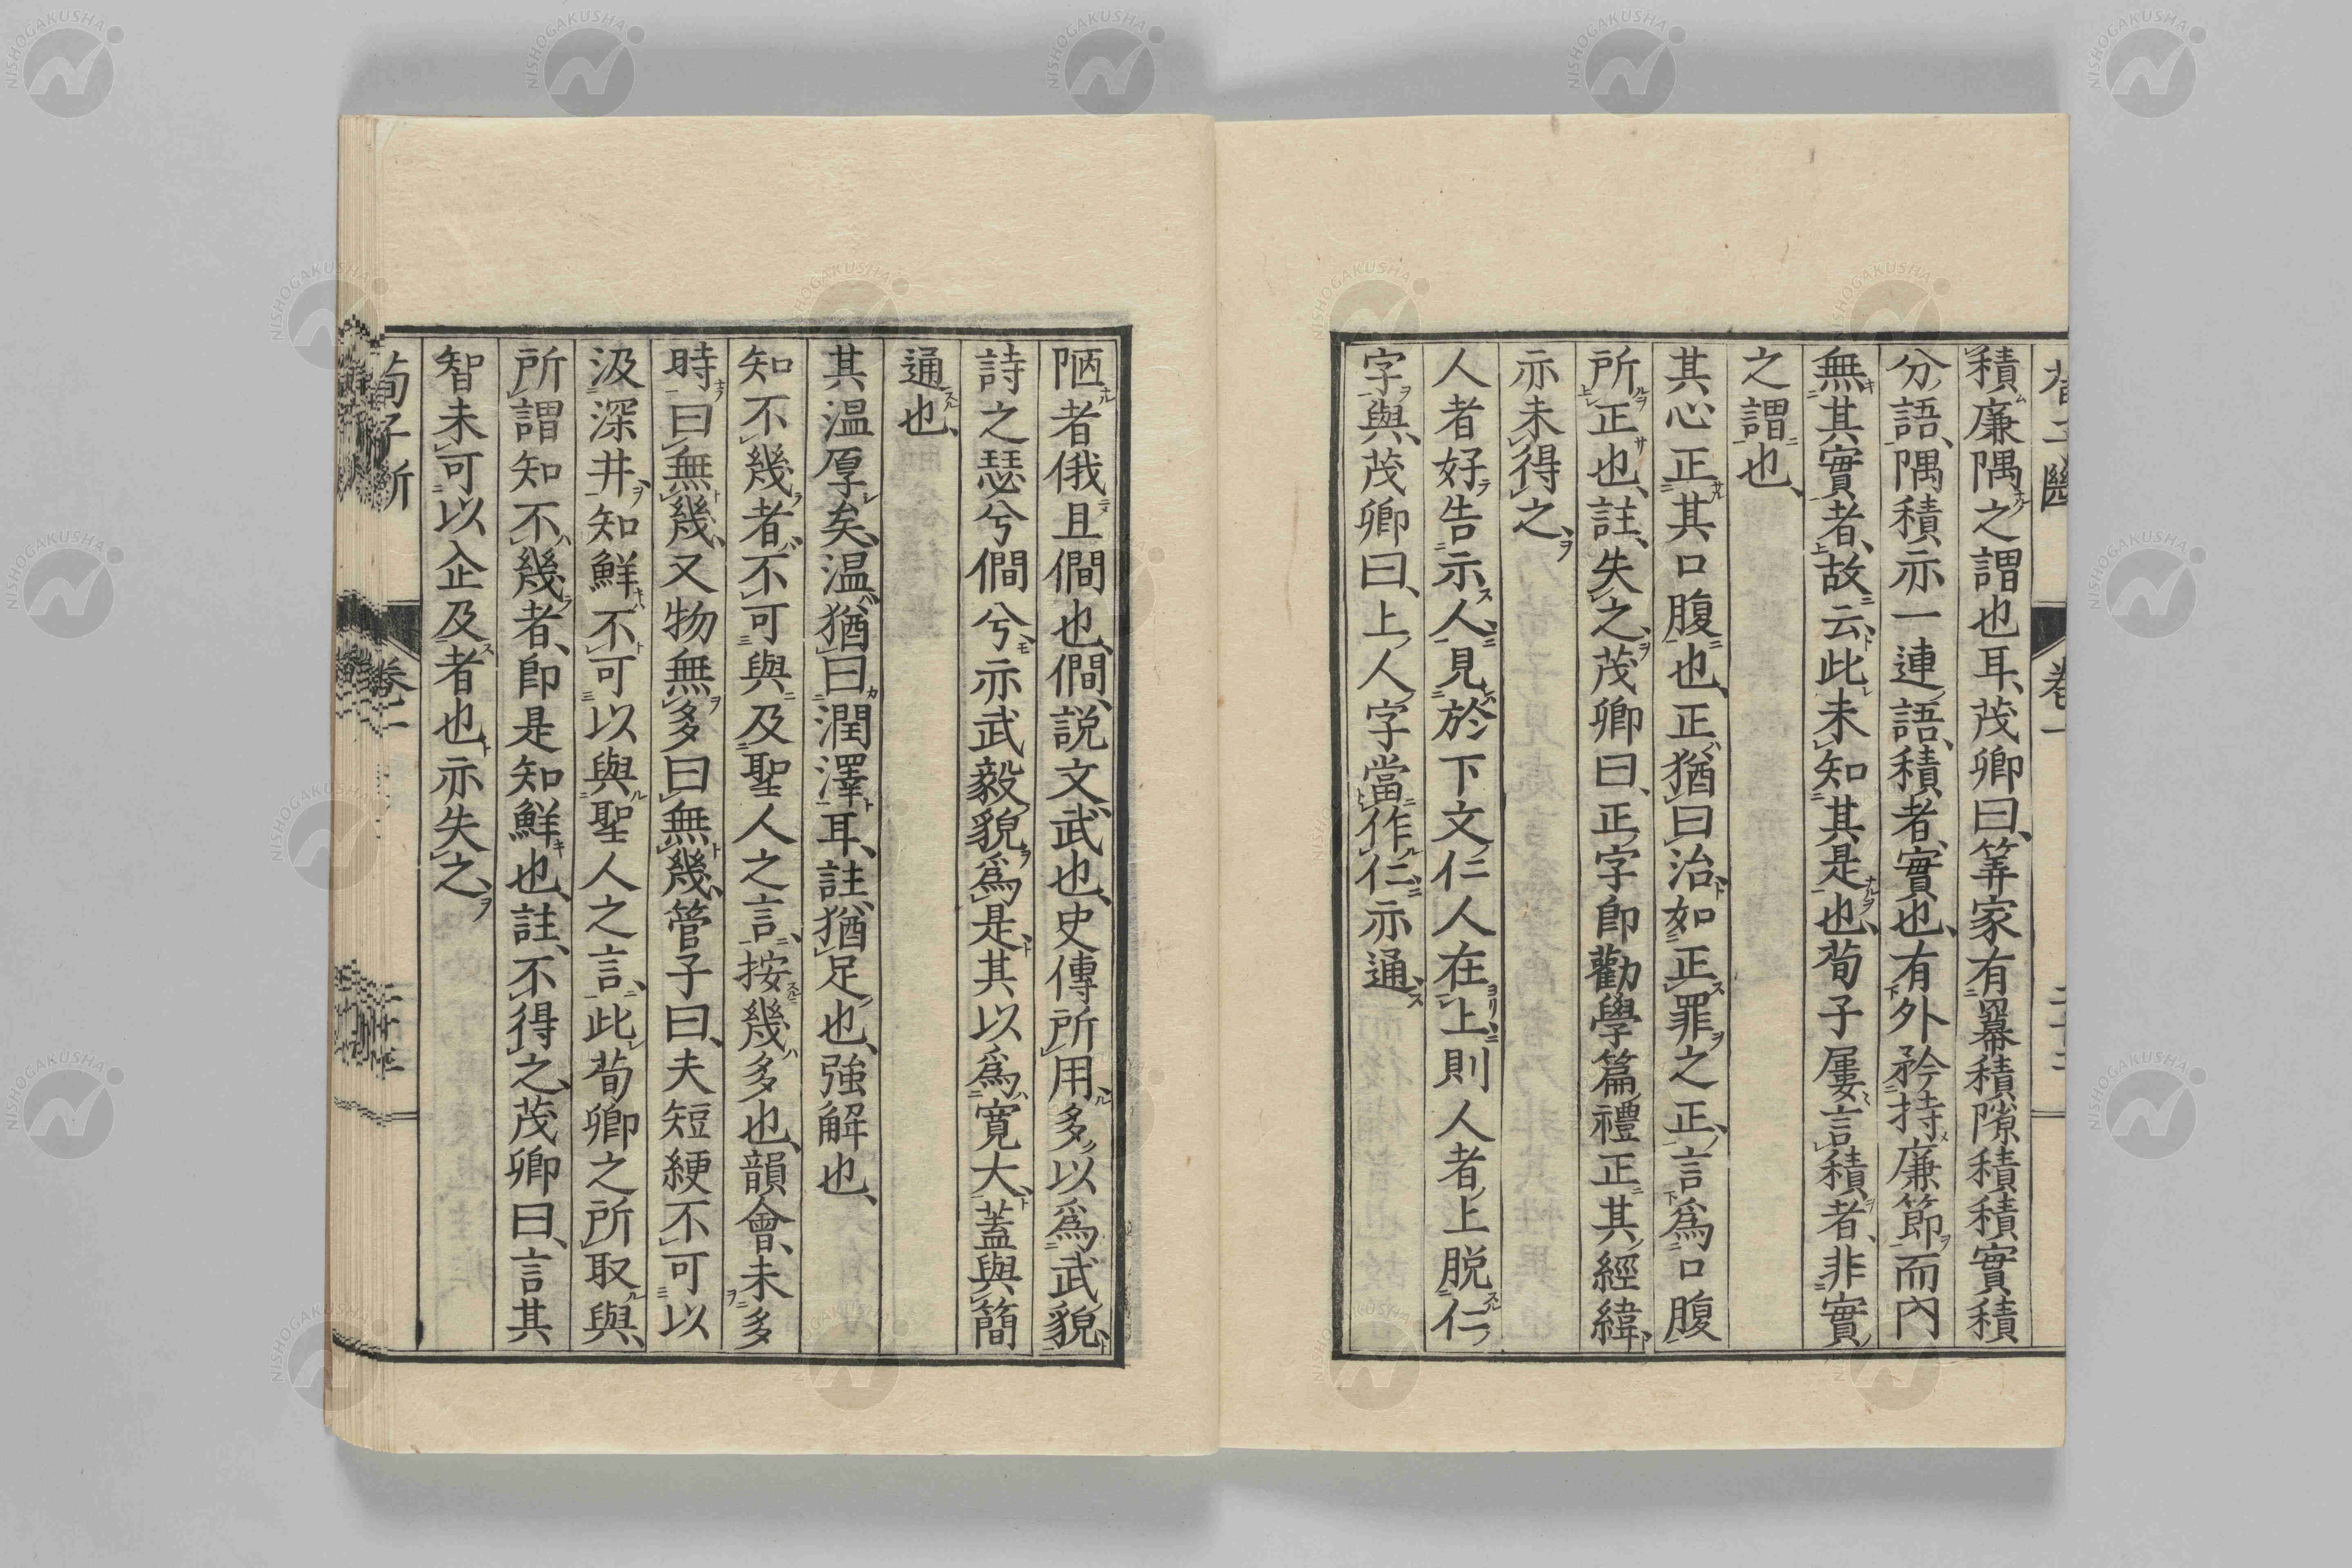 積廉隅之謂也耳、茂卿曰、筭家有冪積隙積積實積
分語、隅積亦一連語、積者、實也、有外矜持廉節而內
無其實者、故云、此未知其是也、荀子屢言積者、非實
之謂也、
其心正其口腹也、正猶曰治、如正罪之正、言爲口腹
所正也、註、失之、茂卿曰、正字卽勸學篇禮正其經緯、
亦未得之、
人者好告示人、見於下文、仁人在上、則人者上脫仁
字與、茂卿曰、上人字當作仁、亦通、
陋者俄且僩也、僩、說文、武也、史傳所用多以爲武貌、
詩之瑟兮僩兮亦武毅貌爲是、其以爲寬大、蓋與簡
通也、
其溫厚矣、溫、猶曰潤澤耳、註、猶足也、強解也、
知不幾者、不可與及聖人之言、按幾多也、韻會、未多
時曰無幾、又物無多曰無幾、管子曰、夫短綆不可以
汲深井、知鮮不可以與聖人之言、此荀卿之所取與、
所謂知不幾者、卽是知鮮也、註、不得之、茂卿曰、言其
智未可以企及者也、亦失之、
荀子斷
卷一